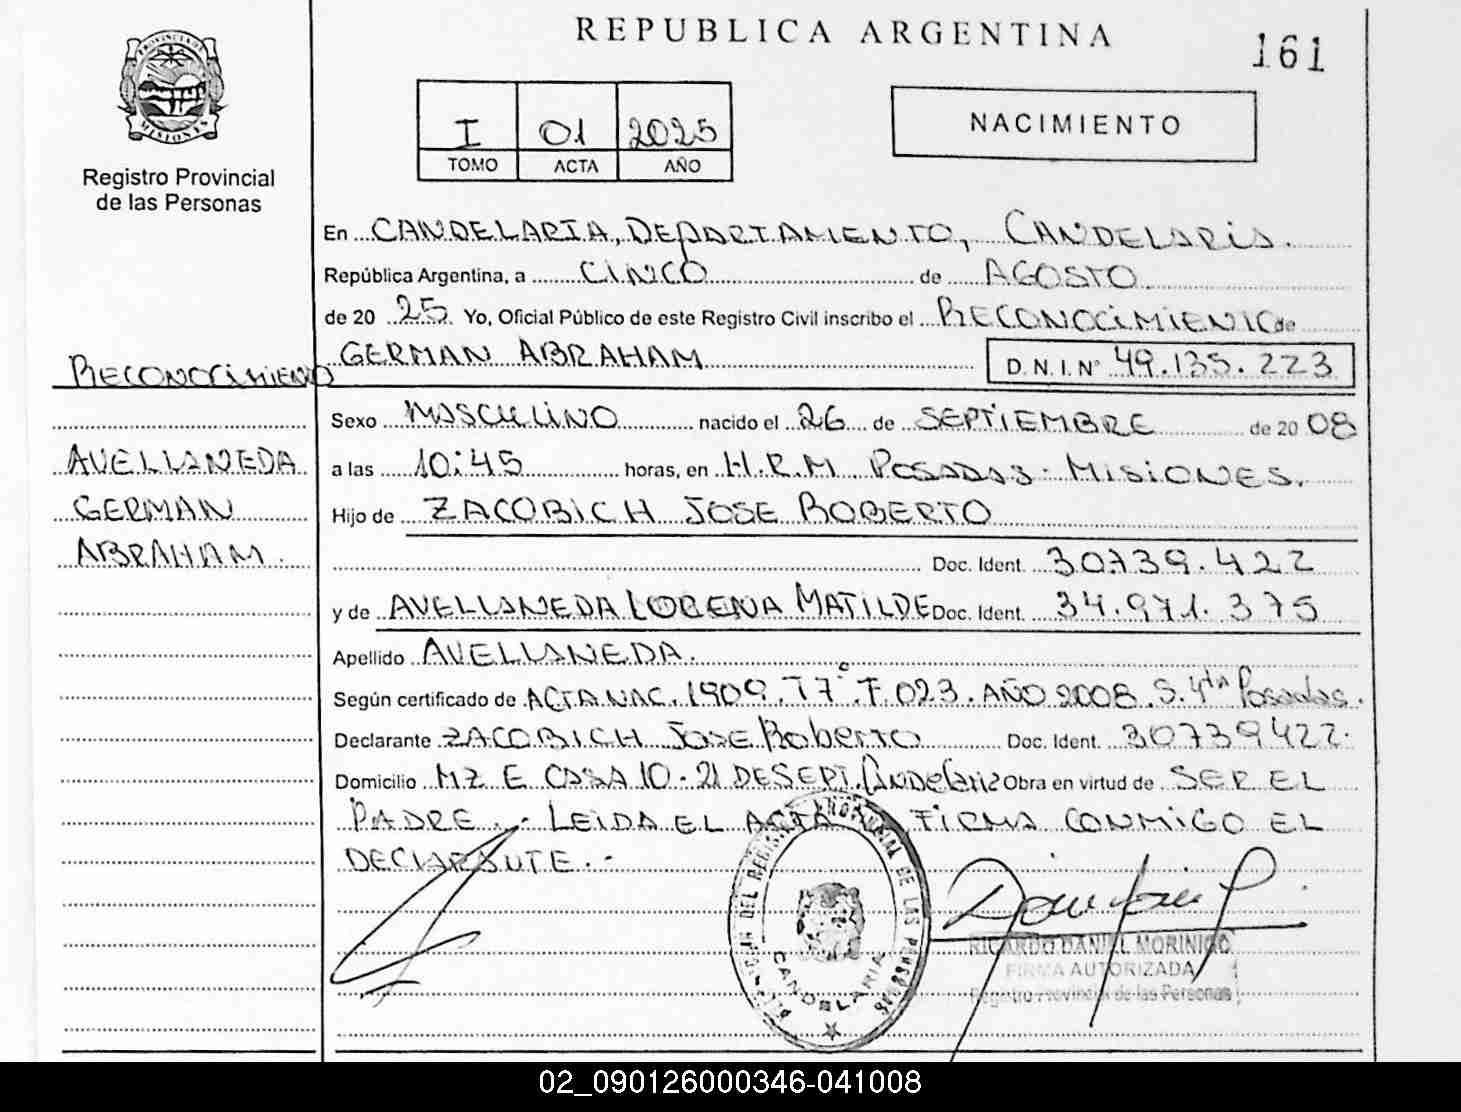 REPUBLICA ARGENTINA
161
PROVINCIA DE
MISIONES
Registro Provincial
de las Personas
I 01 2025
TOMO ACTA AÑO
NACIMIENTO
En CANDELARIA, DEPARTAMENTO, CANDELARIA.
República Argentina, a CINCO de AGOSTO
de 20 25 Yo, Oficial Público de este Registro Civil inscribo el RECONOCIMIENTO de
GERMAN ABRAHAM D.N.I. Nº 49.135.223
RECONOCIMIENTO
AVELLANEDA
GERMAN
ABRAHAM.
Sexo MASCULINO nacido el 26 de SEPTIEMBRE de 20 08
a las 10:45 horas, en H.R.M POSADAS - MISIONES.
Hijo de ZACOBICH JOSE ROBERTO
Doc. Ident. 30739.422
y de AVELLANEDA LORENA MATILDE Doc. Ident. 34.971.375
Apellido AVELLANEDA.
Según certificado de ACTA NAC. 1909. T7°. F. 023. AÑO 2008. S. 4ta Posadas.
Declarante ZACOBICH Jose Roberto Doc. Ident. 30739422.
Domicilio MZ E CASA 10 - 21 DE SEPT. Candelaria Obra en virtud de SER EL
PADRE. - LEIDA EL ACTA FIRMA CONMIGO EL
DECLARANTE. -
DELEGACION DEL REGISTRO PROVINCIAL DE LAS PERSONAS
CANDELARIA
RICARDO DANIEL MORINIGO
FIRMA AUTORIZADA
Registro Provincial de las Personas
02_090126000346-041008